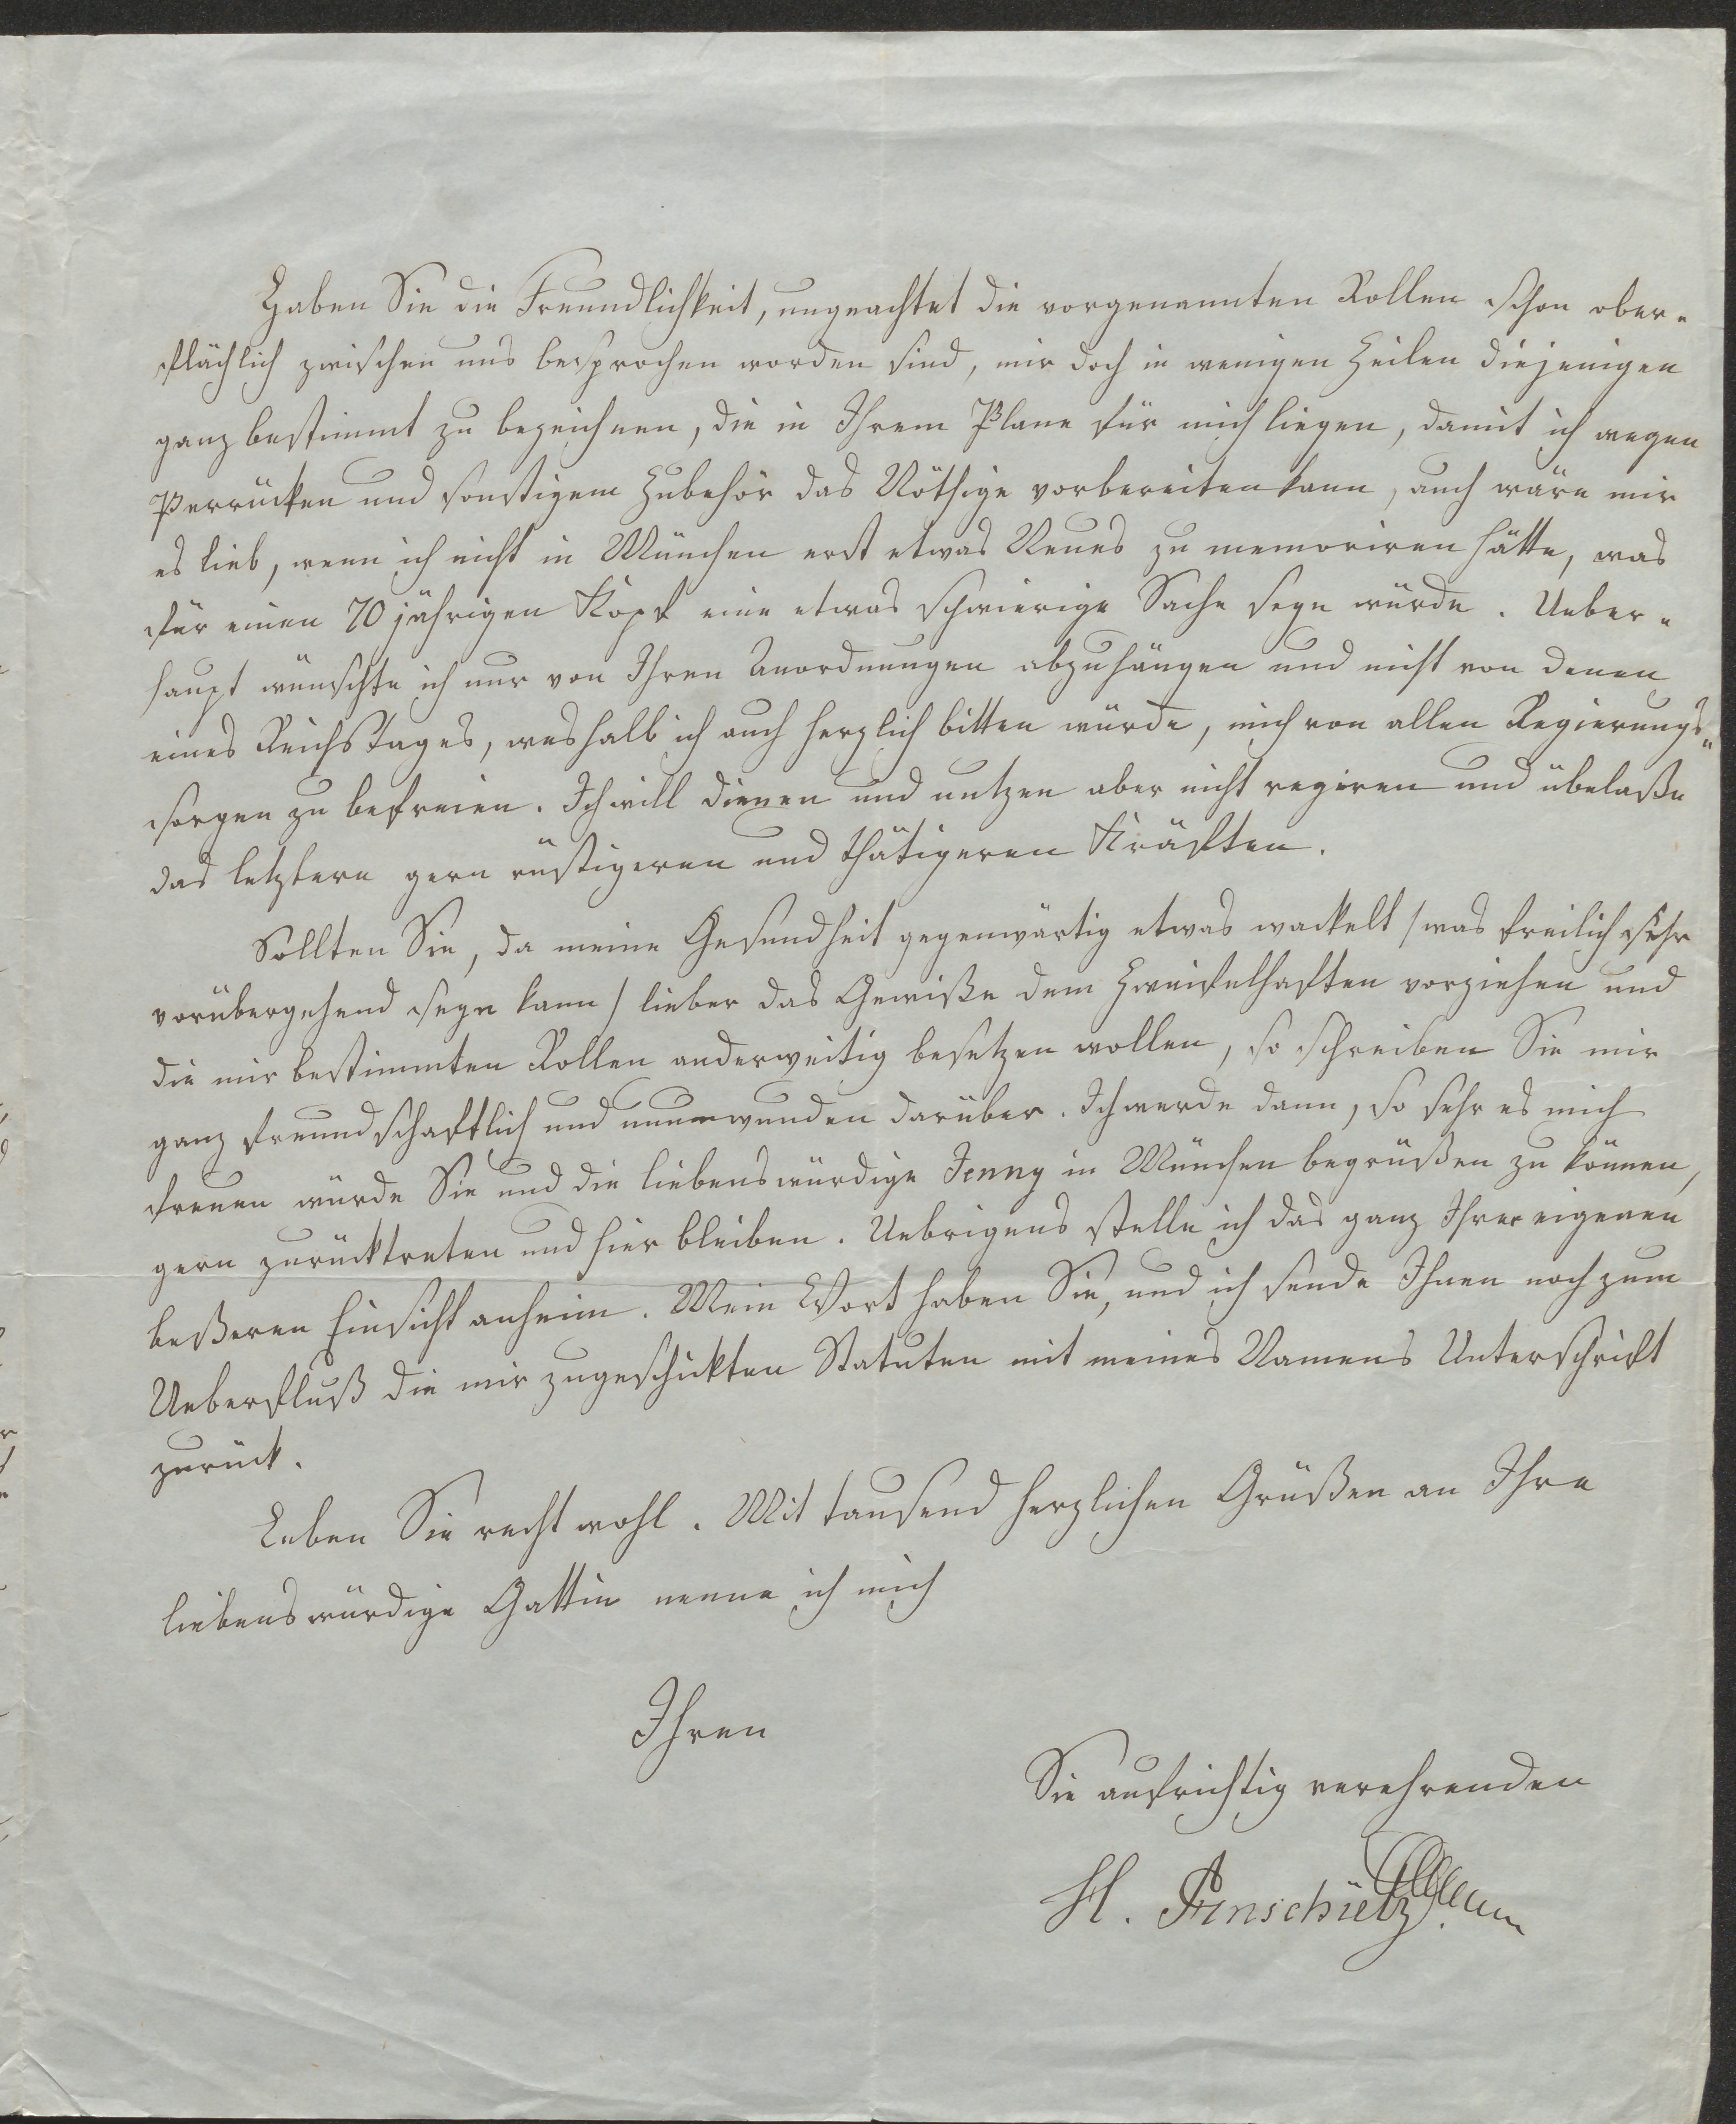 Haben Sie die Freundlichkeit, ungeachtet die vorgenannten Rollen schon ober-
flächlich zwischen uns besprochen worden sind, mir doch in wenigen Zeilen diejenigen
ganz bestimmt zu bezeichnen, die in Ihrem Plane für mich liegen, damit ich wegen
Perrücken und sonstigem Zubehör das Nöthige vorbereiten kann, auch wäre mir
es lieb, wenn ich nicht in München erst etwas Neues zu memoriren hätte, was
für einen 70 jährigen Kopf eine etwas schwierige Sache seyn würde. Ueber-
haupt wünschte ich nur von Ihren Anordnungen abzuhängen und nicht von denen
eines Reichstages, weshalb ich auch herzlich bitten würde, mich von allen Regierungs-
sorgen zu befreien. Ich will dienen und nutzen aber nicht regiren und übelaße
das letztere gern rüstigeren und thätigeren Kräften.
Sollten Sie, da meine Gesundheit gegenwärtig etwas wackelt /was freilich sehr
vorübergehend seyn kann/ lieber das Gewiße dem Zweifelhaften vorziehen und
die mir bestimmten Rollen anderweitig besetzen wollen, so schreiben Sie mir
ganz freundschaftlich und unumwunden darüber. Ich werde dann, so sehr es mich
freuen würde Sie und die liebenswürdige Jenny in München begrüßen zu können,
gern zurücktreten und hier bleiben. Uebrigens stelle ich das ganz Ihrer eigenen
beßeren Einsicht anheim. Mein Wort haben Sie, und ich sende Ihnen noch zum
Ueberfluß die mir zugeschickten Statuten mit meines Namens Unterschrift
zurück.
Leben Sie recht wohl. Mit tausend herzlichen Grüßen an Ihre
liebenswürdige Gattin nenne ich mich
Ihren
Sie aufrichtig verehrenden
H. Anschütz